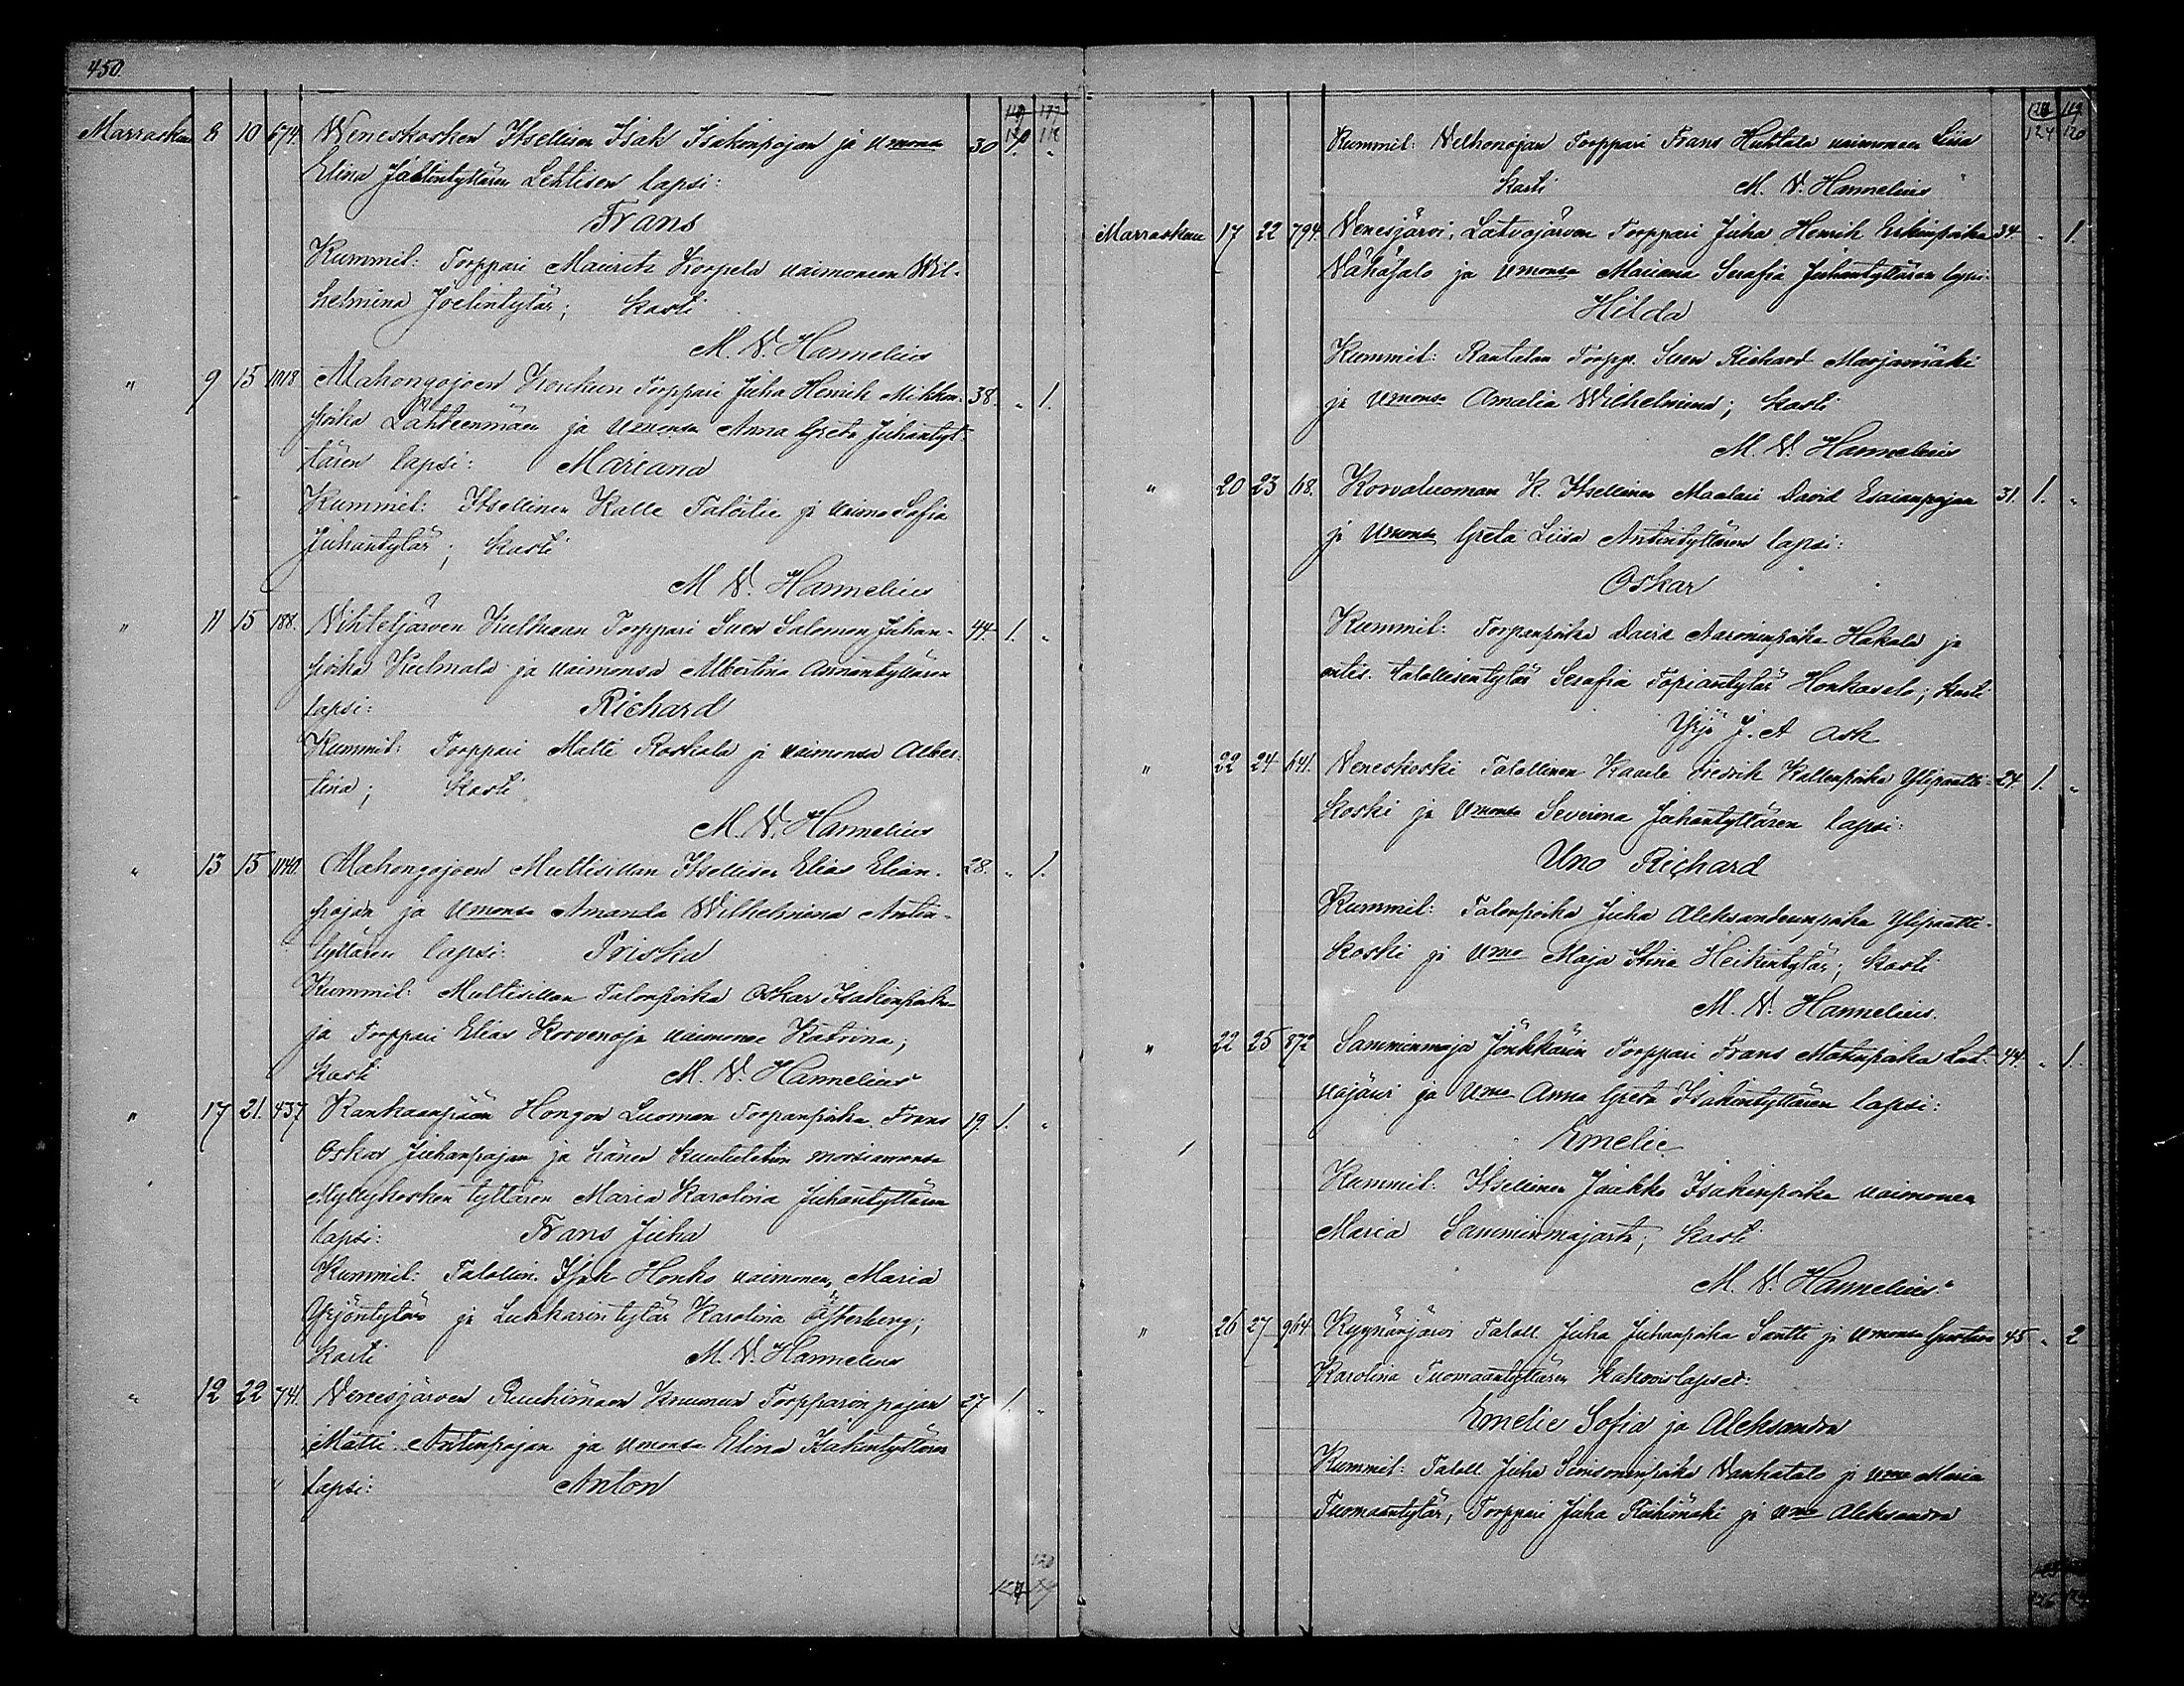 450.
119 117
Marraskuu 8 10 674. Weneskosken Itsellisen Isak Isakinpojan ja vmonsa 30 120 118
Elina Jaklintyttären Lehtisen lapsi:
Frans
Kummit: Torppari Mauritz Korpela vaimoneen Wil-
helmina Joelintytär; Kasti
M. W. Hannelius
" 9 15 1018 Mahongojoen Koukun Torppari Juha Henrik Mikkon- 38. " 1.
poika Lähteenmäen ja vmonsa Anna Greta Juhantyt-
tären lapsi: Mariana
Kummit: Itsellinen Kalle Talôitie ja vaimo Sofia
Juhantytär; Kasti
M. W. Hannelius
" 11 15 188. Vihteljärven Kulkaan Torppari Sven Salomon Juhan- 44. 1. "
poika Kulmala ja vaimonsa Albertina Aronantyttären
lapsi: Richard
Kummit: Torppari Matti Roskala ja vaimonsa Alber-
tina; Kasti
M. W. Hannelius
" 13 15 1140. Mahongojoen Multisillan Itsellisen Elias Elian- 28. " 1.
pojan ja vmonsa Amanda Wilhelmina Antin-
tyttären lapsi: Priska
Kummit: Multisillan Talonpoika Oskar Isakinpoika
ja Torppari Elias Korvenoja vaimonsa Katrina;
Kasti M. W. Hannelius
" 17 21. 437. Kankaanpään Hongon Luoman Torpanpoika Frans 19. 1. "
Oskar Juhanpojan ja hänen kuulutetun morsiamensa
Myllykosken tyttären Maria Karolina Juhantyttären
lapsi: Frans Juha
Kummit: Talollin. Isak Honko vaimoneen, Maria
Yrjöntytär ja Lukkarin tytär Karolina Österberg;
Kasti M. W. Hannelius
" 12 22 741. Venesjärven Ruuhimaan Kruunun Torpparin pojan 27 1. "
Matti Antinpojan ja vmonsa Elina Isakintyttären
lapsi: Anton
119 120
124 120
Kummit: Velhonojan Torppari Frans Huhtala vaimoneen Liisa
Kasti M. W. Hannelius
Marraskuu 17 22 794. Venesjärvi, Latvajärven Torppari Juha Henrik Erkinpoika 34. " 1.
Vähäsalo ja vmonsa Mariana Serafia Juhantyttären lapsi:
Hilda
Kummit: Rantalan Torpp. Sven Richard Marjamäki
ja vmonsa Amalia Wilhelmina; Kasti
M. W. Hannelius
" 20 23 68. Korvaluoman K. Itsellinen Maalari David Esaianpojan 31. 1. "
ja vmonsa Greta Liisa Antintyttären lapsi:
Oskar
Kummit: Torpanpoika David Aaroninpoika Hakala ja
entis. talollisentytär Serafia Topiantytär Honkasalo; Kasti
Yrjö J. A. Ask
" 22 24 641. Veneskoski Talollinen Kaarle Fredrik Kallenpoika Ylipaatti- 24. 1. "
koski ja vmonsa Severina Juhantyttären lapsi:
Uno Richard
Kummit: Talonpoika Juha Aleksanderinpoika Ylipaatti-
koski ja vmo Maja Stina Heikintytär; Kasti
M. W. Hannelius.
" 22 25 872 Samminmaja Jönkkärin Torppari Frans Matinpoika Lat- 44. " 1.
vajärvi ja vmo Anna Greta Isakintyttären lapsi:
Emelie
Kummit: Itsellinen Jaakko Isakinpoika vaimoneen
Maria Samminmajasta; Kasti
M. W. Hannelius
" 26 27 964. Kyynärjärvi Taloll. Juha Juhanpoika Santti ja vmonsa Gustava 45 " 2
Karolina Tuomaantyttären kaksoislapset:
Emelie Sofia ja Aleksandra
Kummit: Taloll. Juha Simoninpoika Vanhatalo ja vmo Maria
Tuomaantytär, Torppari Juha Riihimäki ja vmo Aleksandra